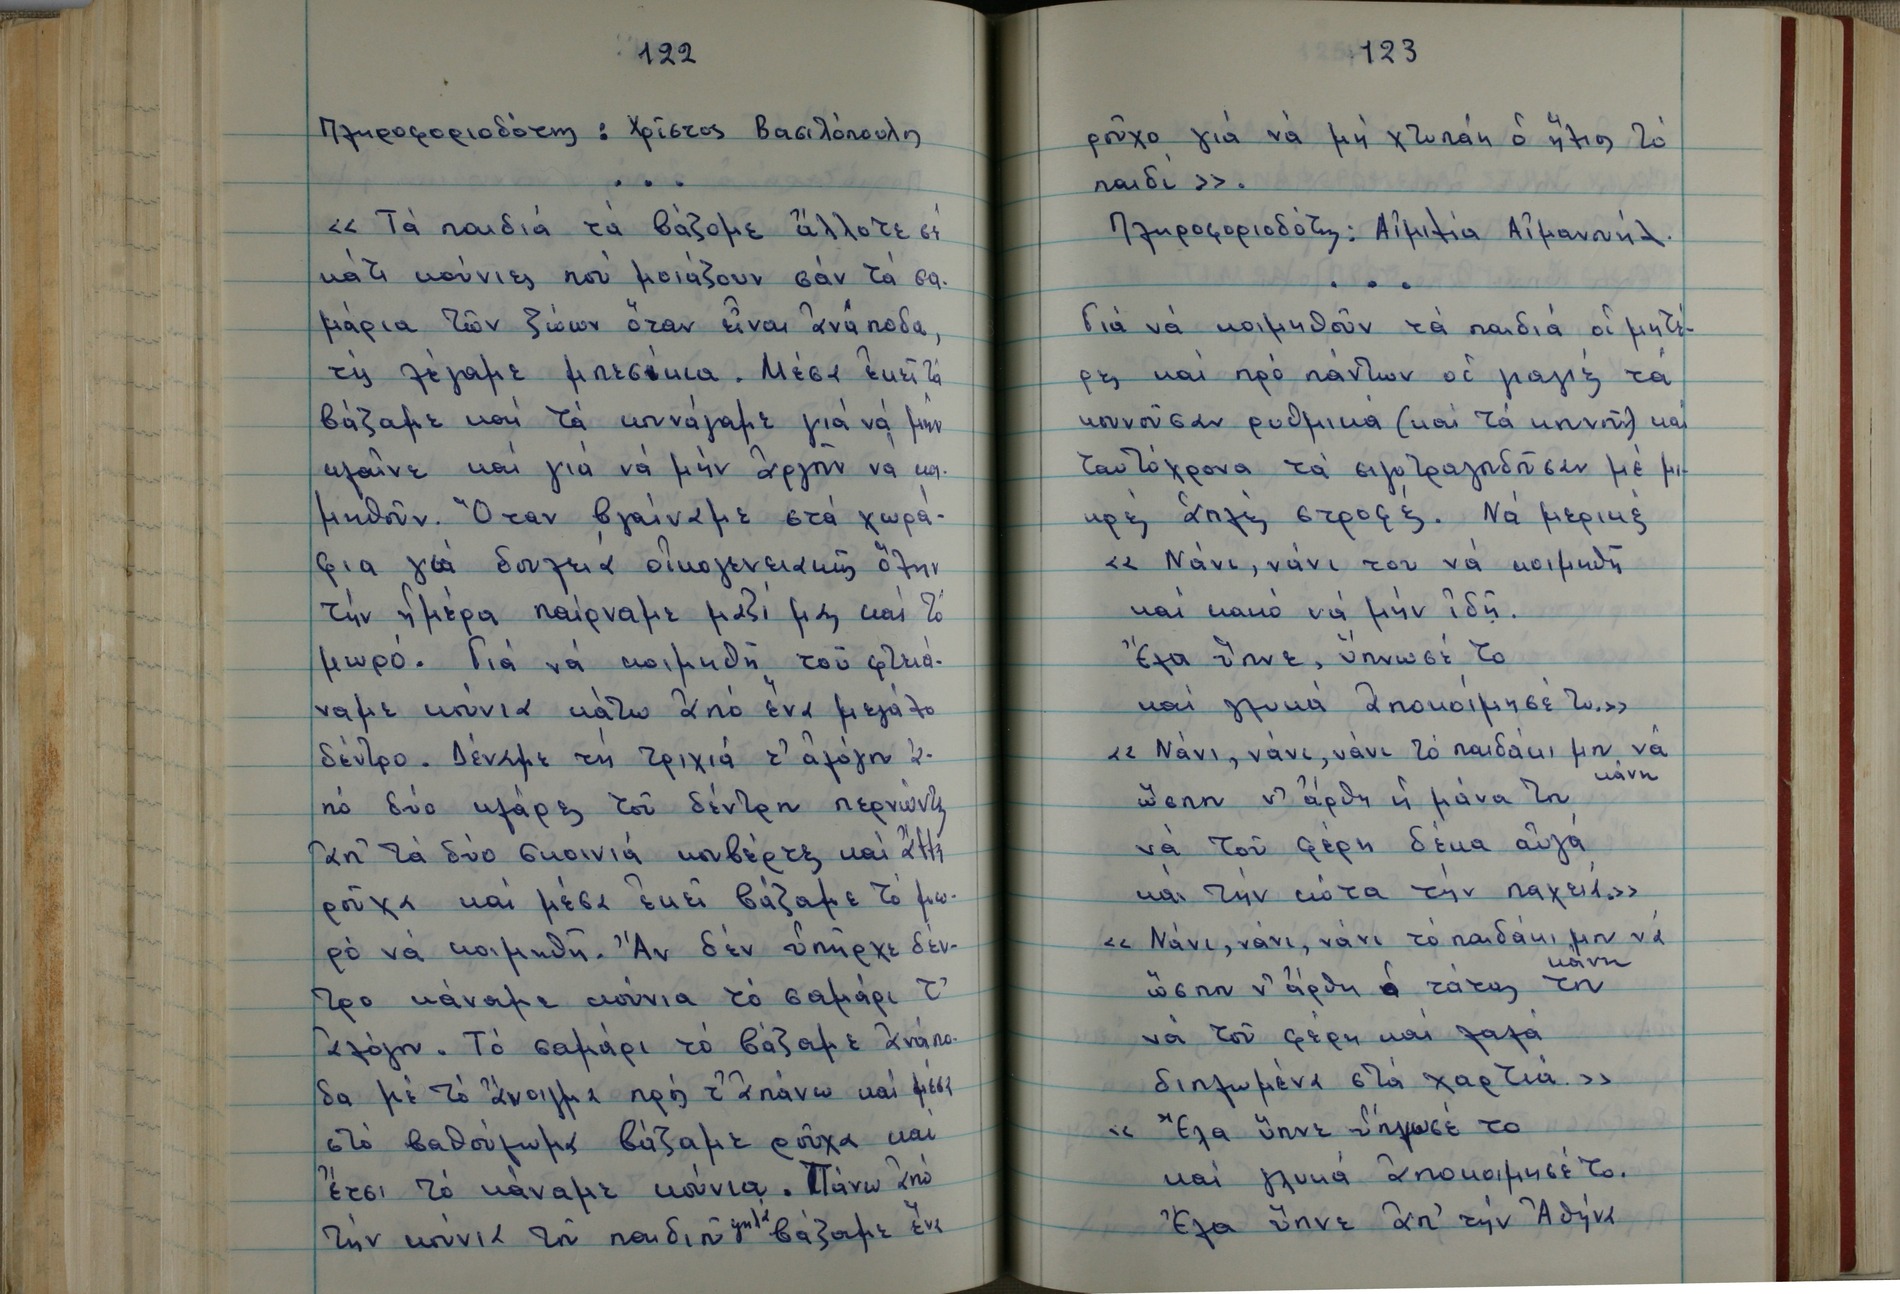 122
Πληροφοριοδότης : Χρῖστος Βασιλόπουλος
. . .
«Τά παιδιά τά βάζομε ἄλλοτε σέ
κάτι κούνιες πού μοιάζουν σάν τά σα-
μάρια τῶν ζώων ὅταν εἶναι ἀνάποδα,
τίς λέγαμε μπεσίκια. Μέσα ἐκεῖ τά
βάζαμε καί τά κουνάγαμε γιά νά μήν
κλαῖνε καί γιά νά μήν ἀργοῦν νά κοι-
μηθοῦν. Ὅταν βγαίναμε στά χωρά-
φια γιά δουλειά οἰκογενειακῶς ὅλην
τήν ἡμέρα παίρναμε μαζί μας καί τό
μωρό. Γιά νά κοιμηθῆ τοῦ φτειά-
ναμε κούνια κάτω ἀπό ἕνα μεγάλο
δέντρο. Δέναμε τή τριχιά τ' ἀλόγου ἀ-
πό δύο κλάρες τοῦ δέντρου περνώντας
ἀπ' τά δύο σκοινιά κουβέρτες καί ἄλλα
ροῦχα καί μέσα ἐκεῖ βάζαμε τό μω-
ρό νά κοιμηθῆ. Ἄν δέν ὑπῆρχε δέν-
τρο κάναμε κούνια τό σαμάρι τ'
ἀλόγου. Τό σαμάρι τό βάζαμε ἀνάπο-
δα μέ τό ἄνοιγμα πρός τ' ἀπάνω καί μέσα
στό βαθούλωμα βάζαμε ροῦχα καί
ἔτσι τό κάναμε κούνια. Πάνω ἀπό
τήν κούνια τοῦ παιδιοῦ ψηλά βάζαμε ἕνα
123
ροῦχο γιά νά μή χτυπάη ὁ ἥλιος τό
παιδί».
Πληροφοριοδότης: Αἰμιλία Αἰμανουήλ.
. . .
Γιά νά κοιμηθοῦν τά παιδιά οἱ μητέ-
ρες καί πρό πάντων οἱ γιαγιές τά
κουνοῦσαν ρυθμικά (καί τά κουνοῦν) καί
ταυτόχρονα τά σιγοτραγουδοῦσαν μέ μι-
κρές ἁπλές στροφές. Νά μερικές
«Νάνι, νάνι του νά κοιμηθῆ
καί κακό νά μήν ἰδῆ.
Ἔλα ὕπνε, ὕπνωσέ το
καί γλυκά ἀποκοίμησέ το.»
«Νάνι, νάνι, νάνι τό παιδάκι μου νά
κάνη
ὥσπου ν' ἄρθη ἡ μάνα του
νά τοῦ φέρη δέκα αὐγά
καί τήν κότα τήν παχειά.»
«Νάνι, νάνι, νάνι τό παιδάκι μου νά
κάνη
ὥσπου ν' ἄρθη ὁ τάτας του
νά τοῦ φέρη καί λαλά
διπλωμένα στά χαρτιά.»
«Ἔλα ὕπνε ὕπνωσέ το
καί γλυκά ἀποκοιμησέ το.
Ἔλα ὕπνε ἀπ' τήν Ἀθήνα